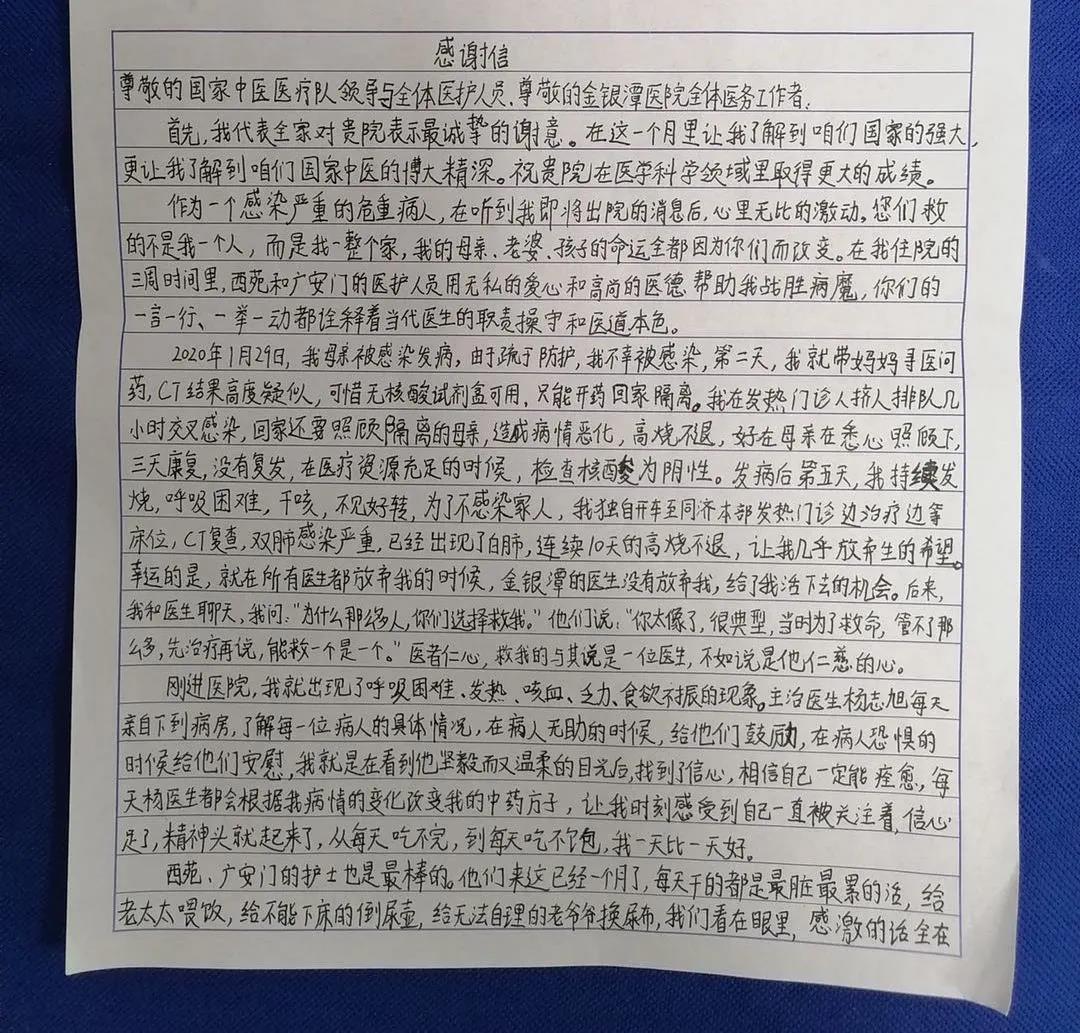 感谢信
尊敬的国家中医医疗队领导与全体医护人员、尊敬的金银潭医院全体医务工作者:
首先,我代表全家对贵院表示最诚挚的谢意。在这一个月里让我了解到咱们国家的强大,
更让我了解到咱们国家中医的博大精深。祝贵院在医学科学领域里取得更大的成绩。
作为一个感染严重的危重病人,在听到我即将出院的消息后,心里无比的激动。您们救
的不是我一个人,而是我一整个家,我的母亲、老婆、孩子的命运全都因为你们而改变。在我住院的
三周时间里,西苑和广安门的医护人员用无私的爱心和高尚的医德帮助我战胜病魔,你们的
一言一行、一举一动都诠释着当代医生的职责操守和医道本色。
2020年1月29日,我母亲被感染发病,由于疏于防护,我不幸被感染,第二天,我就带妈妈寻医问
药,CT结果高度疑似,可惜无核酸试剂盒可用,只能开药回家隔离。我在发热门诊人挤人排队几
小时交叉感染,回家还要照顾隔离的母亲,造成病情恶化,高烧不退,好在母亲在悉心照顾下,
三天康复,没有复发,在医疗资源充足的时候,检查核酸为阴性。发病后第五天,我持续发
烧,呼吸困难,干咳,不见好转,为了不感染家人,我独自开车至同济本部发热门诊边治疗边等
床位,CT复查,双肺感染严重,已经出现了白肺,连续10天的高烧不退,让我几乎放弃生的希望。
幸运的是,就在所有医生都放弃我的时候,金银潭的医生没有放弃我,给了我活下去的机会。后来,
我和医生聊天,我问:“为什么那么多人,你们选择救我。”他们说:“你太像了,很典型,当时为了救命,管不了那
么多,先治疗再说,能救一个是一个。”医者仁心,救我的与其说是一位医生,不如说是他仁慈的心。
刚进医院,我就出现了呼吸困难、发热、咳血、乏力、食欲不振的现象。主治医生杨志旭每天
亲自下到病房,了解每一位病人的具体情况,在病人无助的时候,给他们鼓励,在病人恐惧的
时候给他们安慰,我就是在看到他坚毅而又温柔的目光后,找到了信心,相信自己一定能痊愈,每
天杨医生都会根据我病情的变化改变我的中药方子,让我时刻感受到自己一直被关注着,信心
足了,精神头就起来了,从每天吃不完,到每天吃不饱,我一天比一天好。
西苑、广安门的护士也是最棒的。他们来这已经一个月了,每天干的都是最脏最累的活,给
老太太喂饭,给不能下床的倒尿壶,给无法自理的老爷爷换尿布,我们看在眼里,感激的话全在